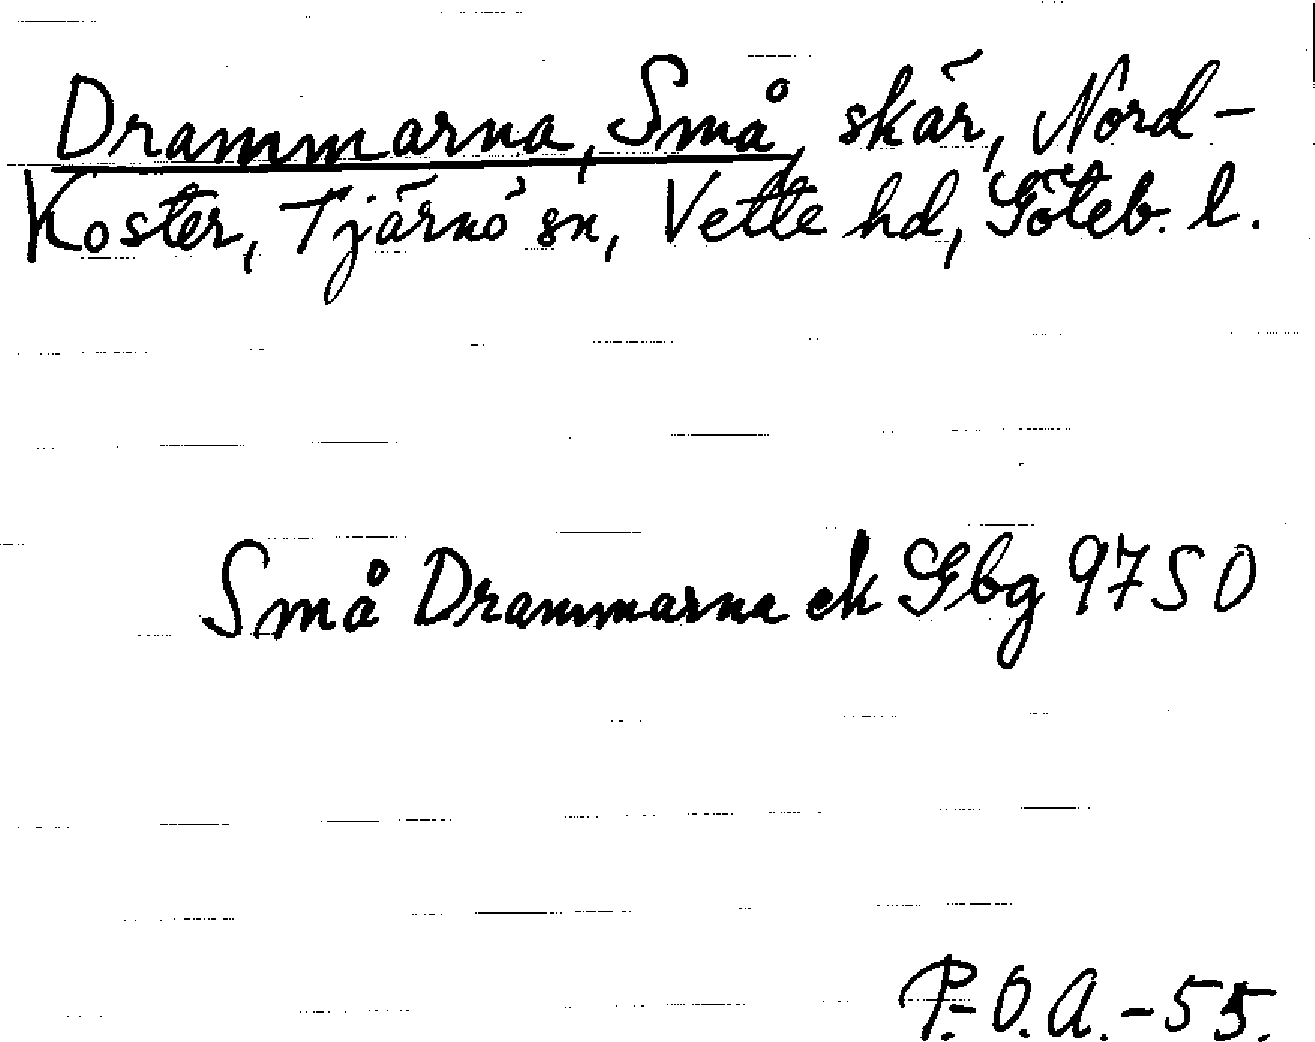 Drammarna, Små, skär, Nord-
Koster, Tjärnö sn, Vette hd, Göteb. l.
Små Drammarna ek Gbg 9750
P.-O.A.-55.